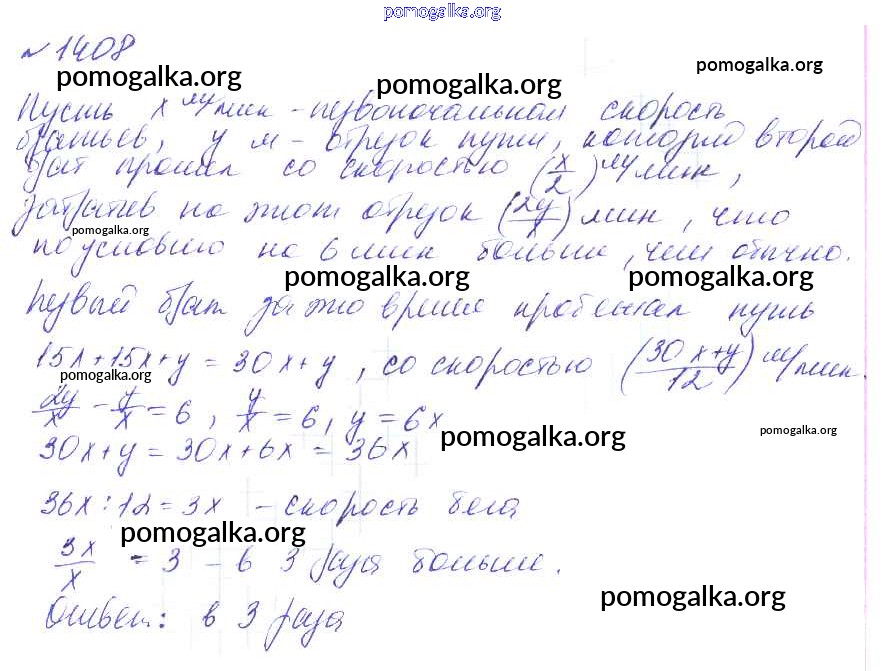 pomogalka.org
№ 1408
pomogalka.org pomogalka.org pomogalka.org
Пусть x м/мин - первоначальная скорость
братьев, y м - отрезок пути, который второй
брат прошел со скоростью (x/2) м/мин,
затратив на этот отрезок (2y/x) мин, что
pomogalka.org
по условию на 6 мин больше, чем обычно.
pomogalka.org pomogalka.org
Первый брат за это время пробежал путь
15x + 15x + y = 30x + y, со скоростью ((30x+y)/12) м/мин.
pomogalka.org
2y/x - y/x = 6, y/x = 6, y = 6x
pomogalka.org pomogalka.org
30x + y = 30x + 6x = 36x
36x : 12 = 3x - скорость бега
pomogalka.org
3x/x = 3 - в 3 раза больше.
pomogalka.org
Ответ: в 3 раза